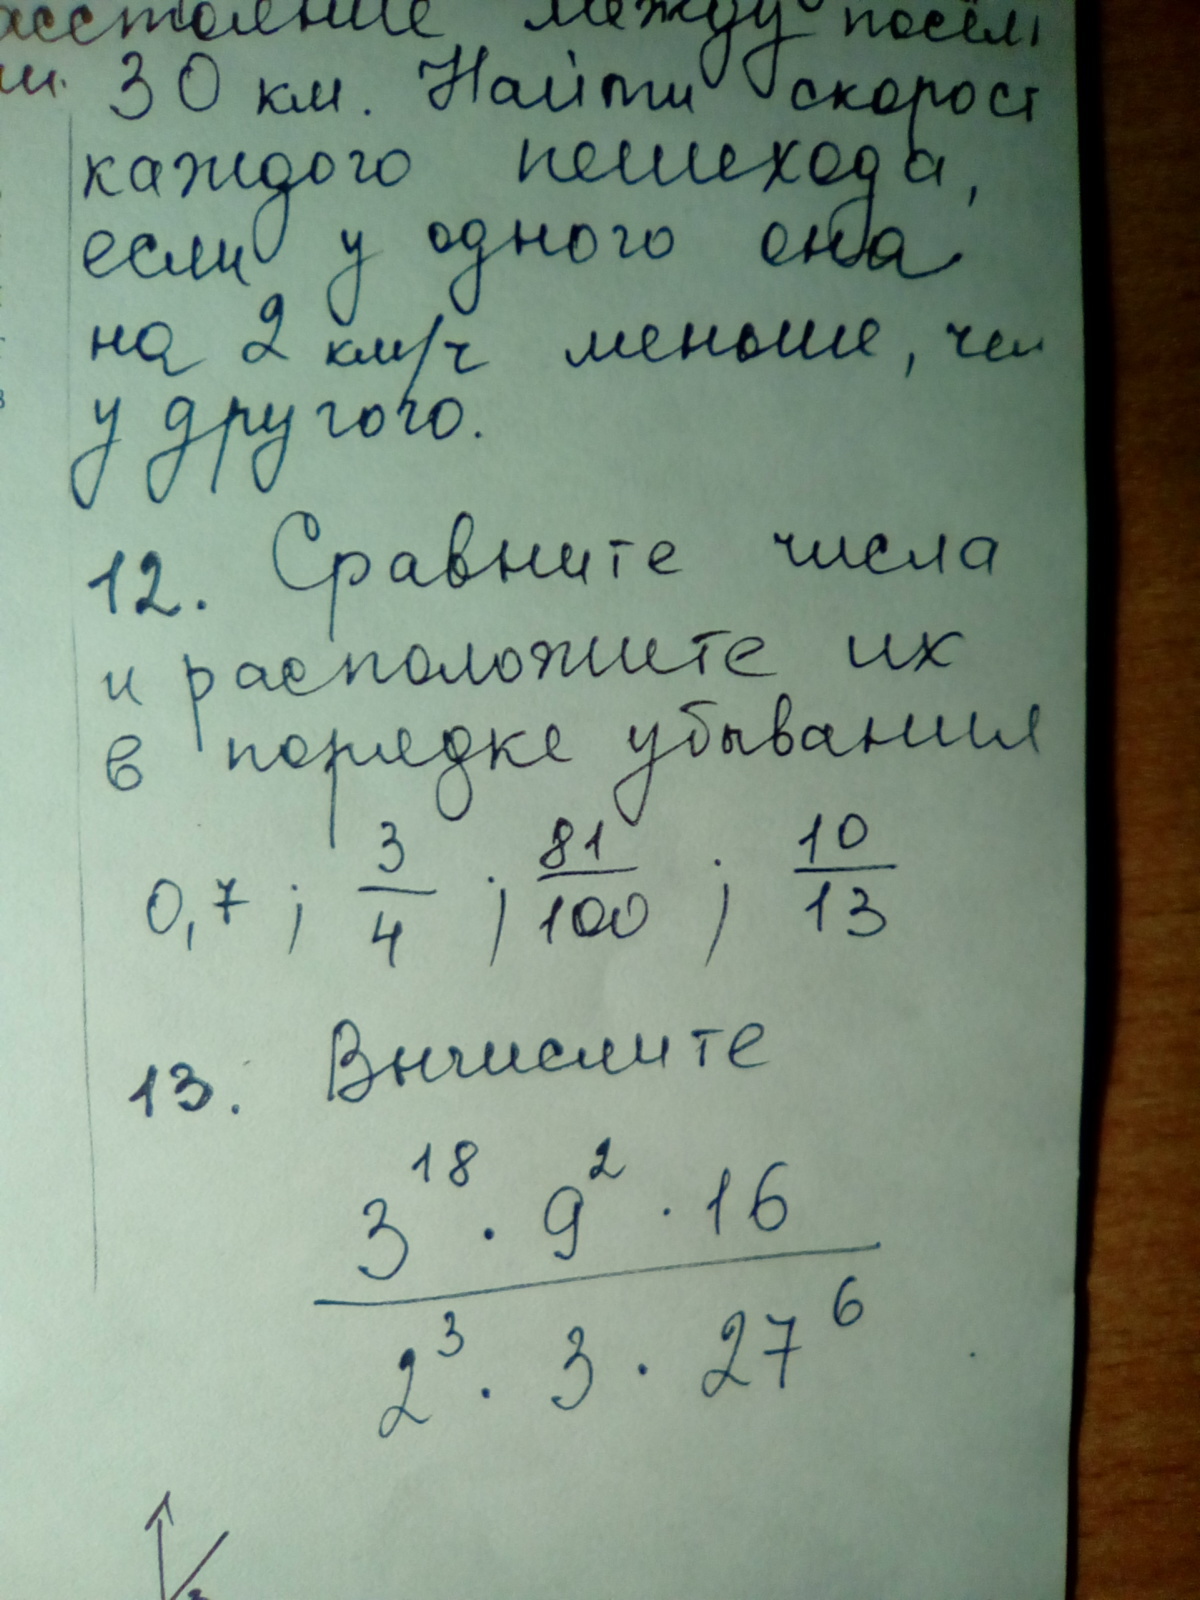 между
30 км. Найти
каждого пешехода,
если у одного она
на 2 км/ч меньше,
у другого.
12. Сравните числа
и расположите их
в порядке убывания
0,7 ; 3/4 ; 81/100 ; 10/13
13. Вычислите
3^18 · 9^2 · 16
2^3 · 3 · 27^6